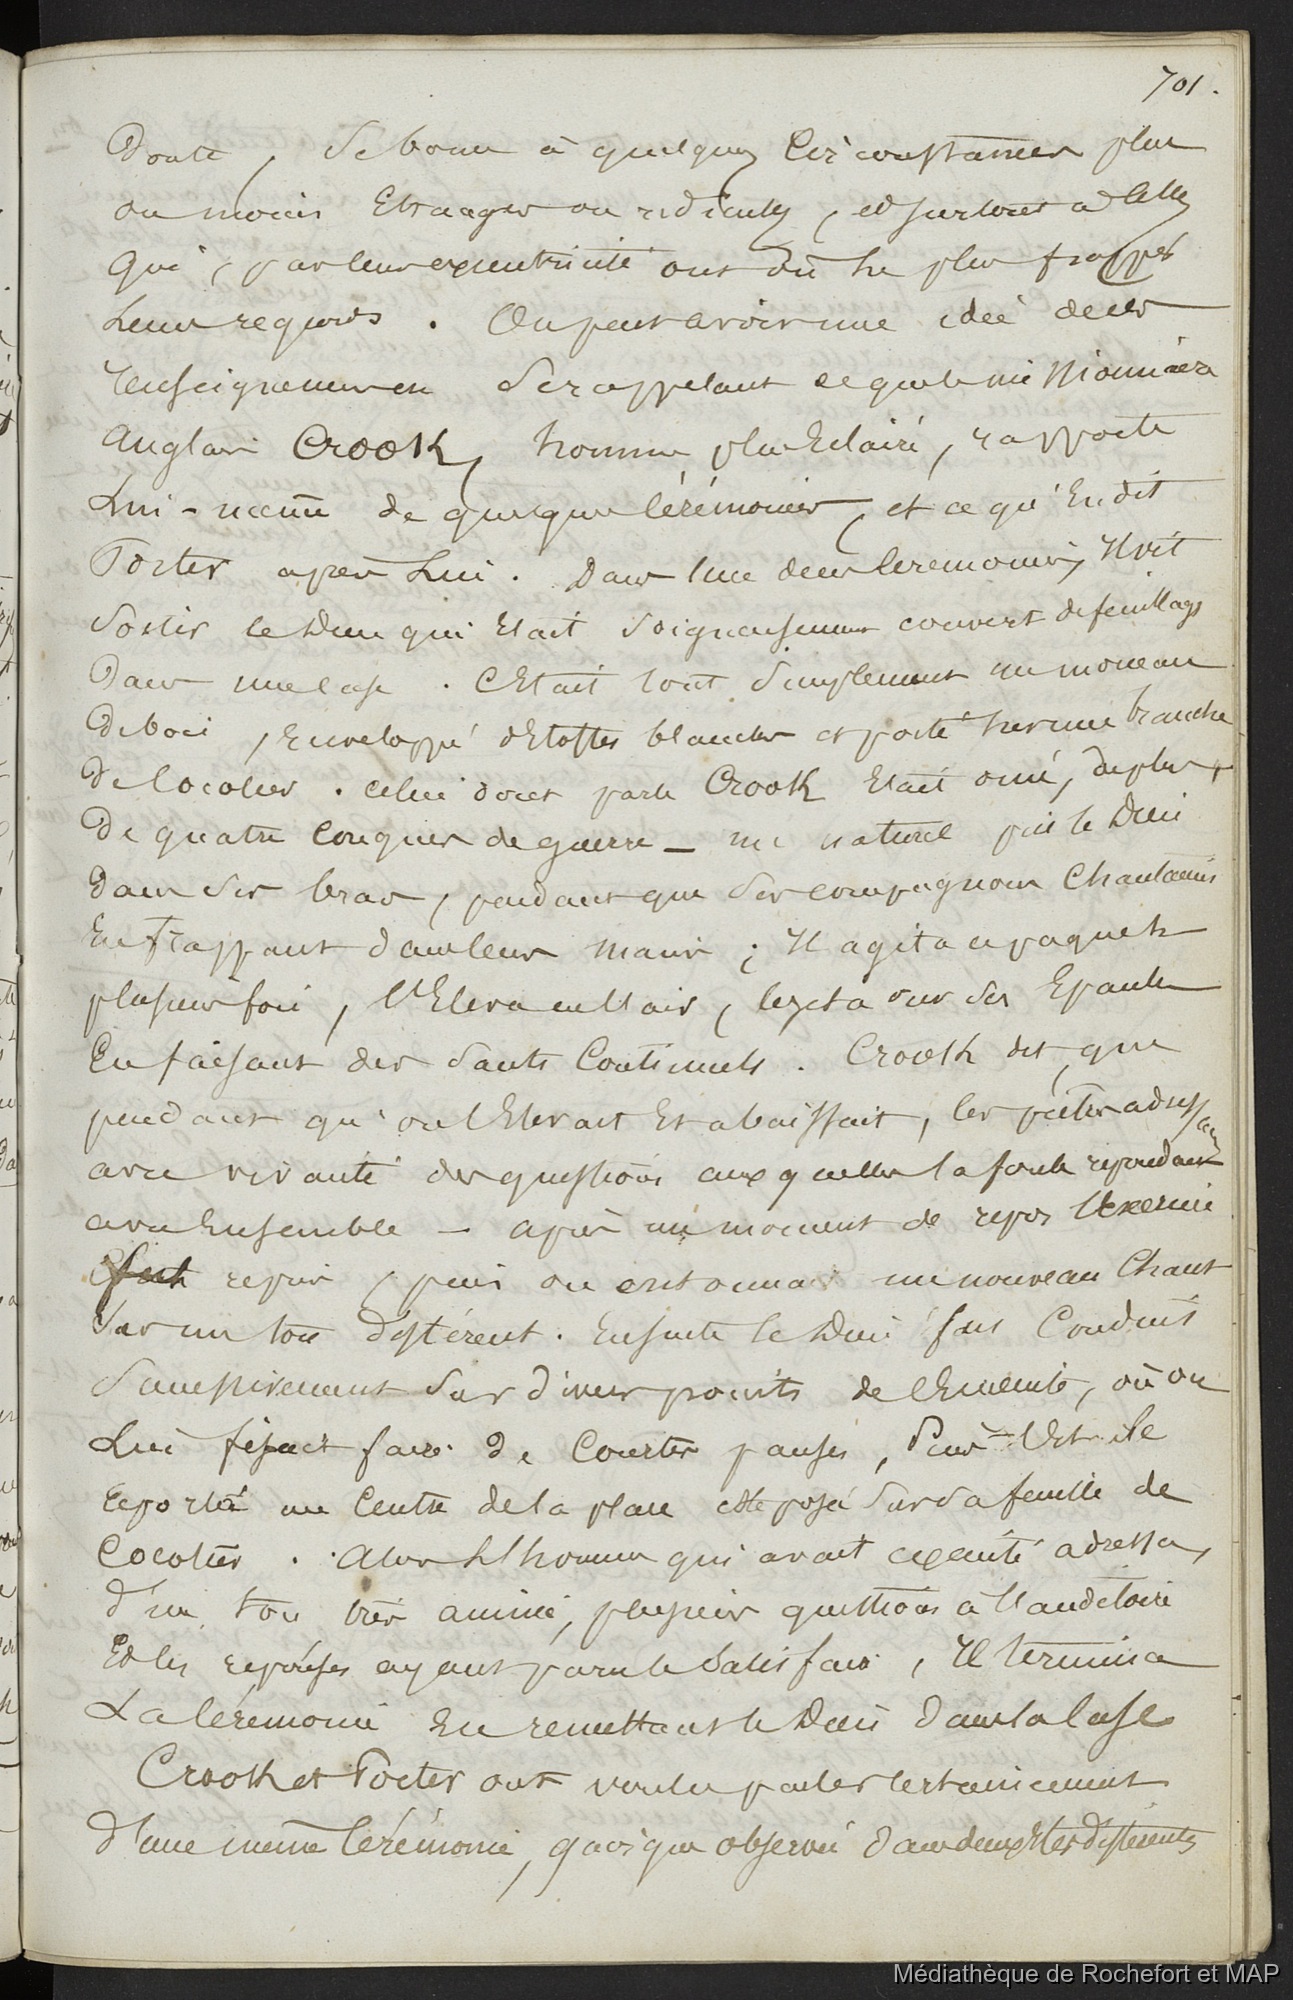 701.
Doute, se borne à quelques Circonstances plus
ou moins Etranges ou ridicules, et surtout à celles
qui, par leur excentricité ont dû le plus frapper
Leurs regards. On peut avoir une idée de ces
renseignemens en se rappelant ce que le missionnaire
Anglais Crook, homme plus Eclairé, rapporte
Lui-même de quelques Cérémonies, et ce qu'En dit
Porter après Lui. Dans l'une de ces Ceremonies, Il vit
Sortir le Dieu qui Etait Soigneusement couvert de feuillages
Dans une case. C'Etait tout Simplement un morceau
De bois, Enveloppé d'Etoffes blanches et porté sur une branche
De Cocotier. celui dont parle Crook Etait orné, de plus,
De quatre Conques de guerre _ un naturel prit le Dieu
Dans Ses bras, pendant que Ses compagnons Chantaient
En frappant dans leurs mains ; Il agita ce paquet
plusieurs fois, l'Eleva en l'air, le jeta sur Ses Epaules
En faisant des Sauts Continuels. Crook dit que
pendant qu'on l'Elevait Et abaissait, les prêtres adressaient
avec vivacité des questions auxquelles la foule repondait
avec Ensemble _ après un moment de repos l'Exercice
fut repris, puis on entonna un nouveau Chant
Sur un ton différent. Ensuite le Dieu fut Conduit
Successivement Sur divers points de l'Enceinte, où on
Lui fesait faire de Courtes pauses, Puis Il Est
reporté au Centre de la place et deposé Sur sa feuille de
Cocotier. Alors L'homme qui avait executé adressa,
d'un ton très animé, plusieurs questions à l'auditoire
Et les reponses ayant paru le Satisfaire, Il termina
La Cérémonie En remettant le Dieu dans la Case
Crook et Porter ont voulu parler Certainement
d'une même Cérémonie, quoique observée dans deux Iles différentes
Médiathèque de Rochefort et MAP